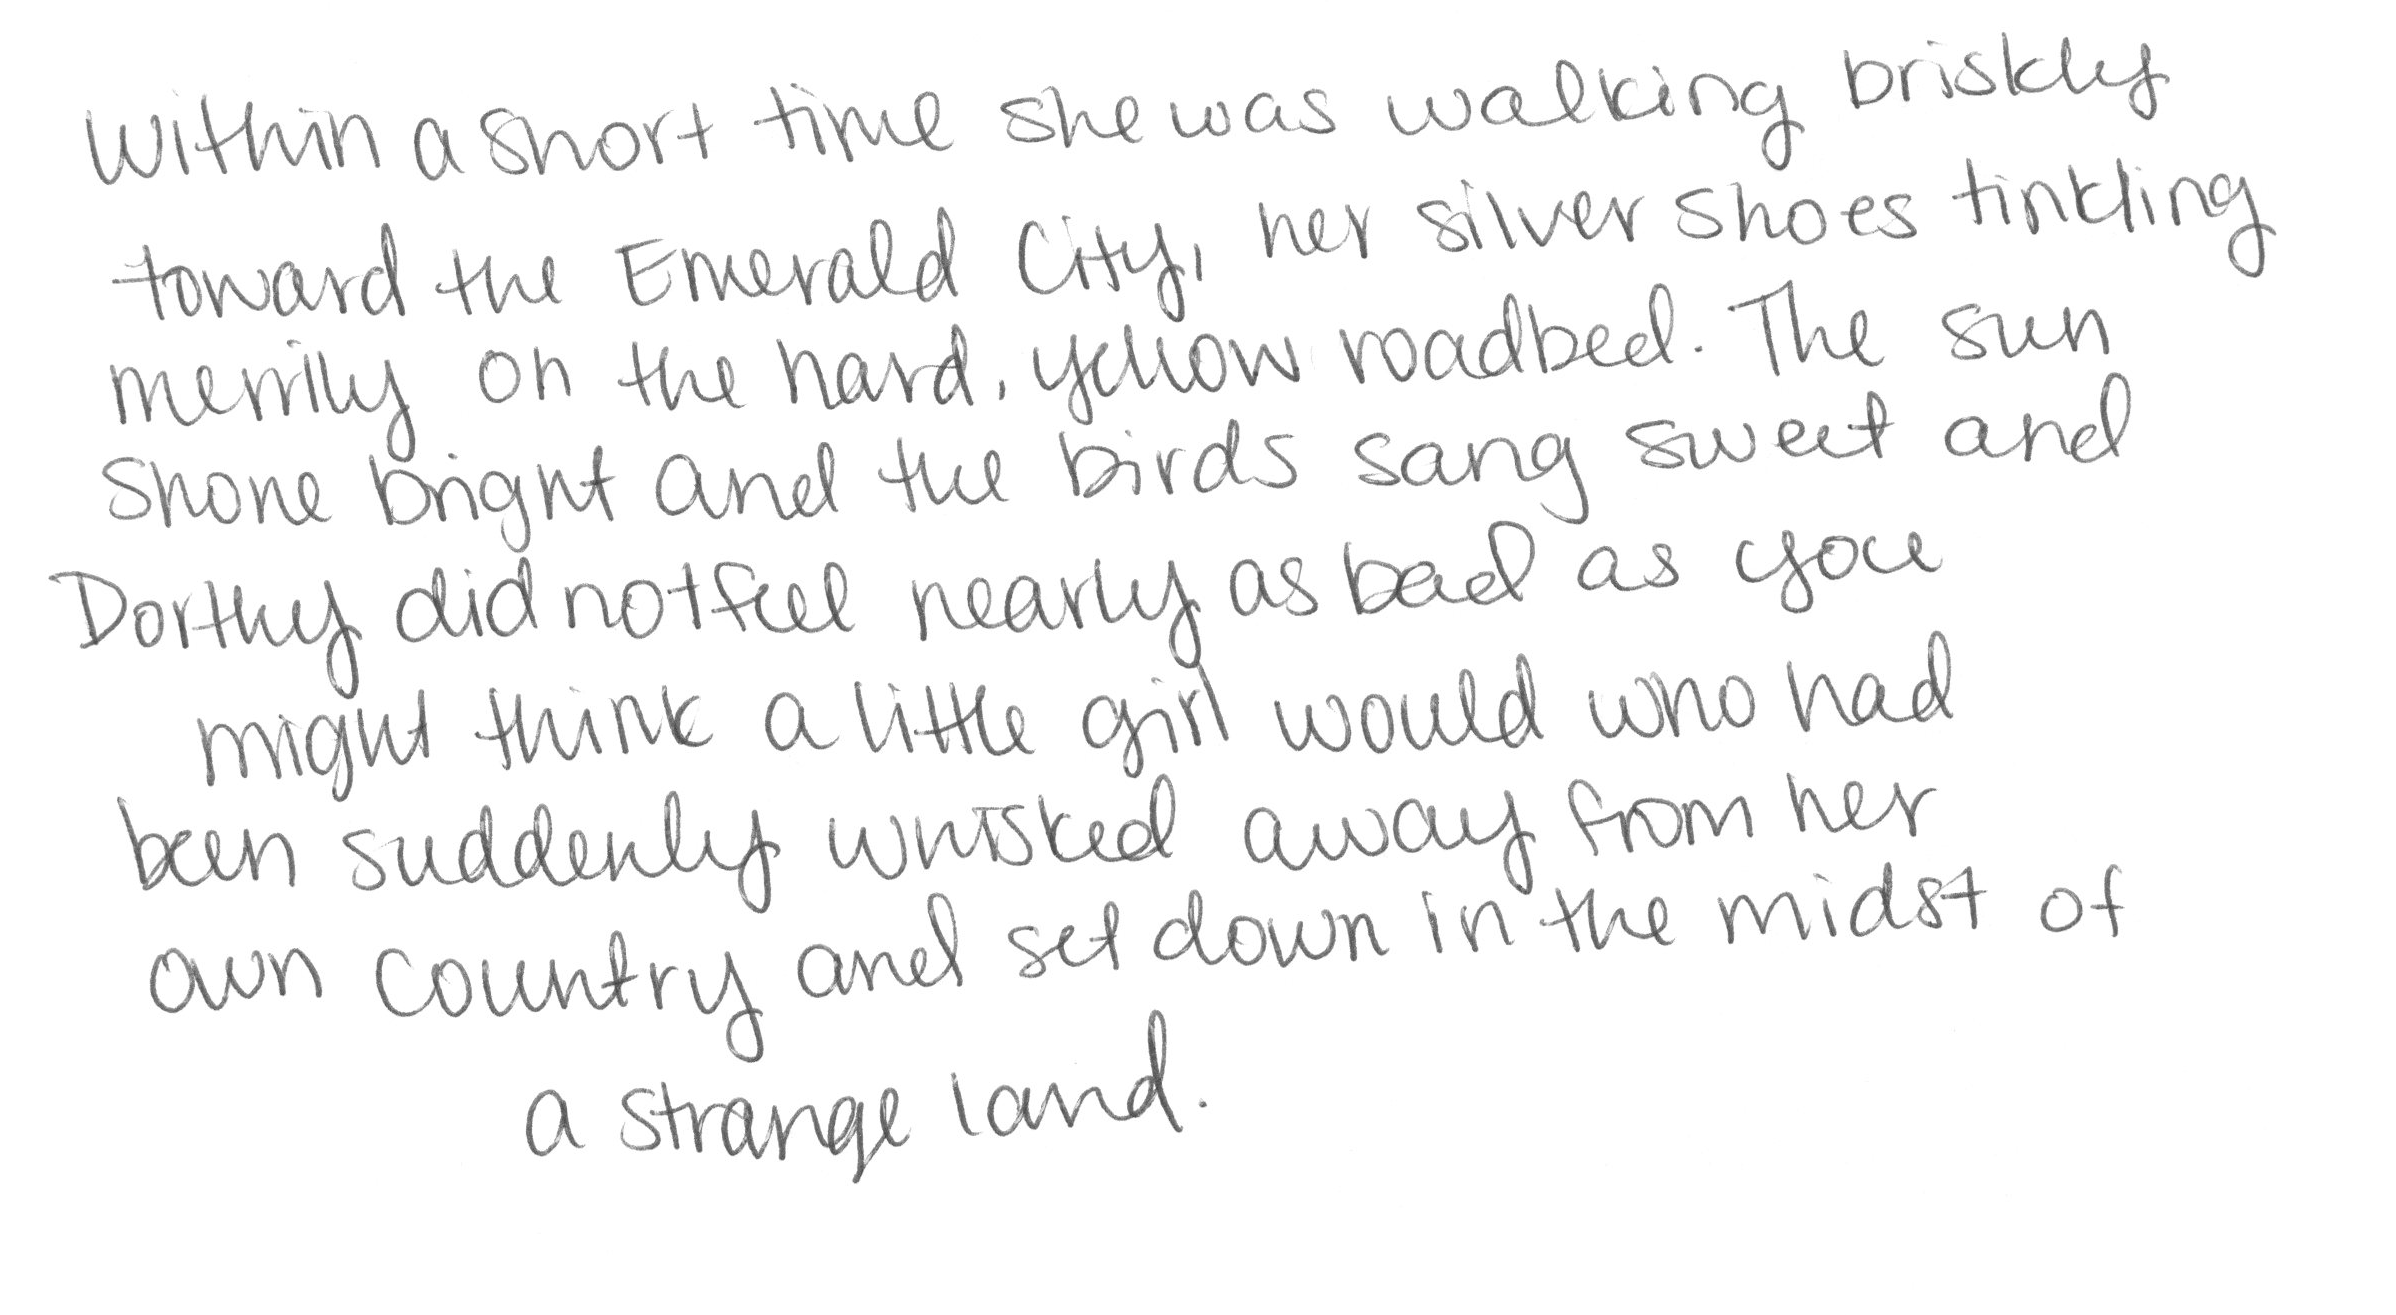 Within a short time she was walking briskly
toward the Emerald City, her silver shoes tinkling
merrily on the hard, yellow roadbed. The sun
shone bright and the birds sang sweet and
Dorthy did not feel nearly as bad as you
might think a little girl would who had
been suddenly whisked away from her
own country and set down in the midst of
a strange land.